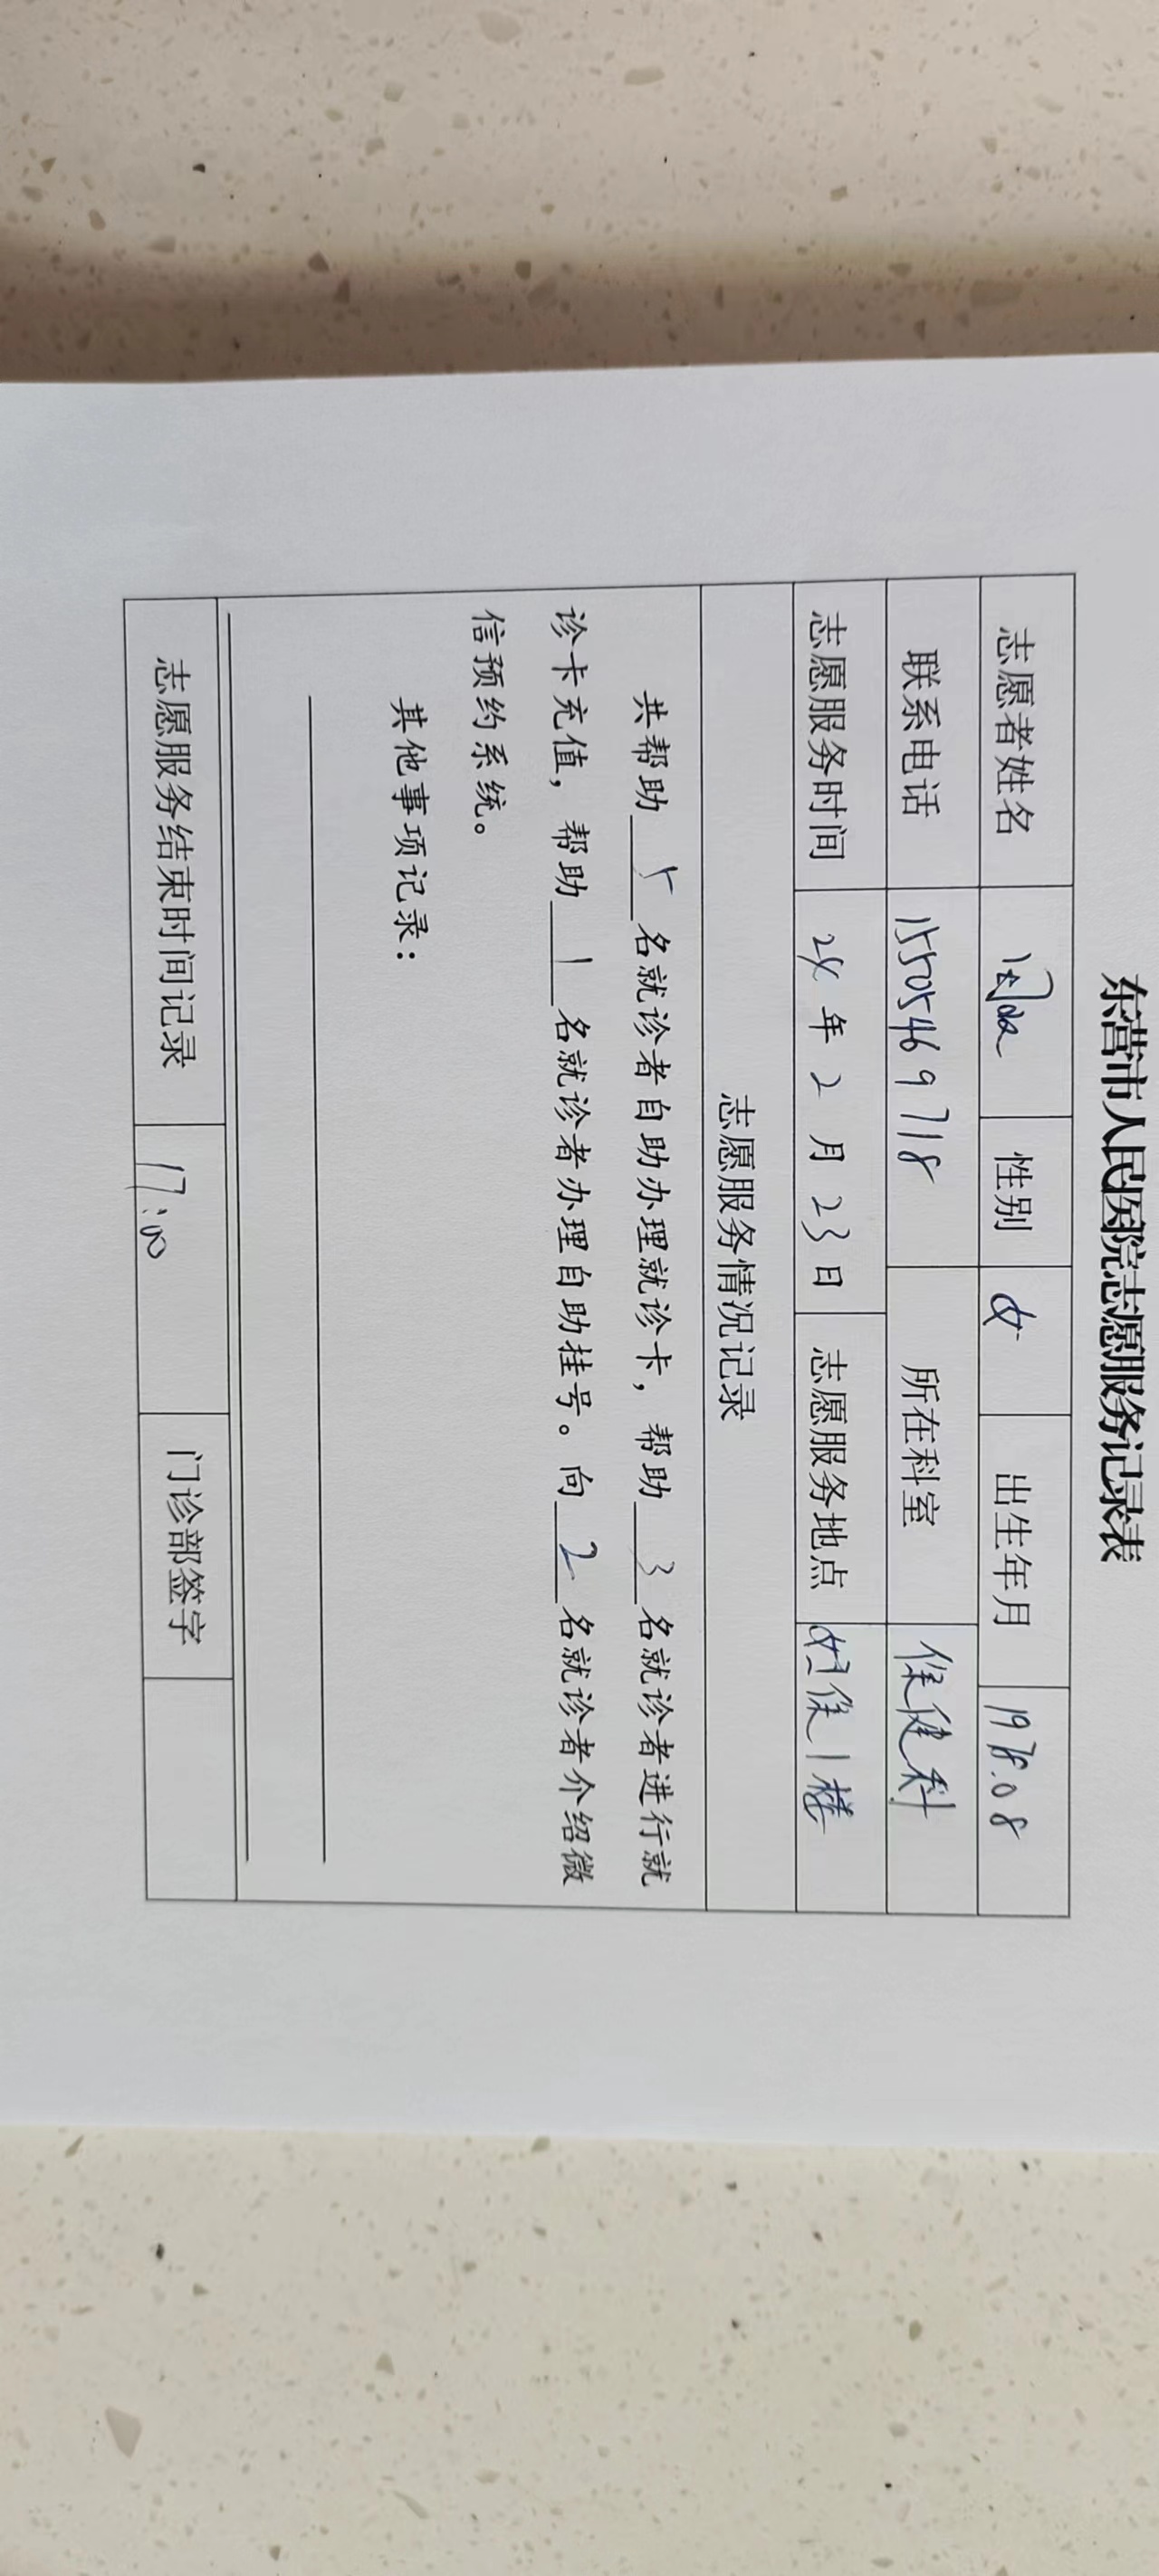 东营市人民医院志愿服务记录表
志愿者姓名 性别 女 出生年月 1978.08
联系电话 15505469718 所在科室 保健科
志愿服务时间 24年2月23日 志愿服务地点 妇保1楼
志愿服务情况记录
共帮助 5 名就诊者自助办理就诊卡，帮助 3 名就诊者进行就
诊卡充值，帮助 1 名就诊者办理自助挂号。向 2 名就诊者介绍微
信预约系统。
其他事项记录：
志愿服务结束时间记录 17:00 门诊部签字